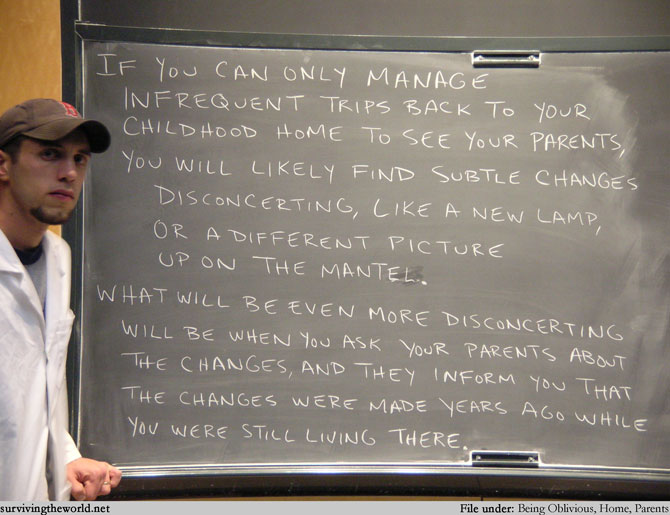 IF YOU CAN ONLY MANAGE
INFREQUENT TRIPS BACK TO YOUR
CHILDHOOD HOME TO SEE YOUR PARENTS,
YOU WILL LIKELY FIND SUBTLE CHANGES
DISCONCERTING, LIKE A NEW LAMP,
OR A DIFFERENT PICTURE
UP ON THE MANTEL.
WHAT WILL BE EVEN MORE DISCONCERTING
WILL BE WHEN YOU ASK YOUR PARENTS ABOUT
THE CHANGES, AND THEY INFORM YOU THAT
THE CHANGES WERE MADE YEARS AGO WHILE
YOU WERE STILL LIVING THERE.
survivingtheworld.net
File under: Being Oblivious, Home, Parents